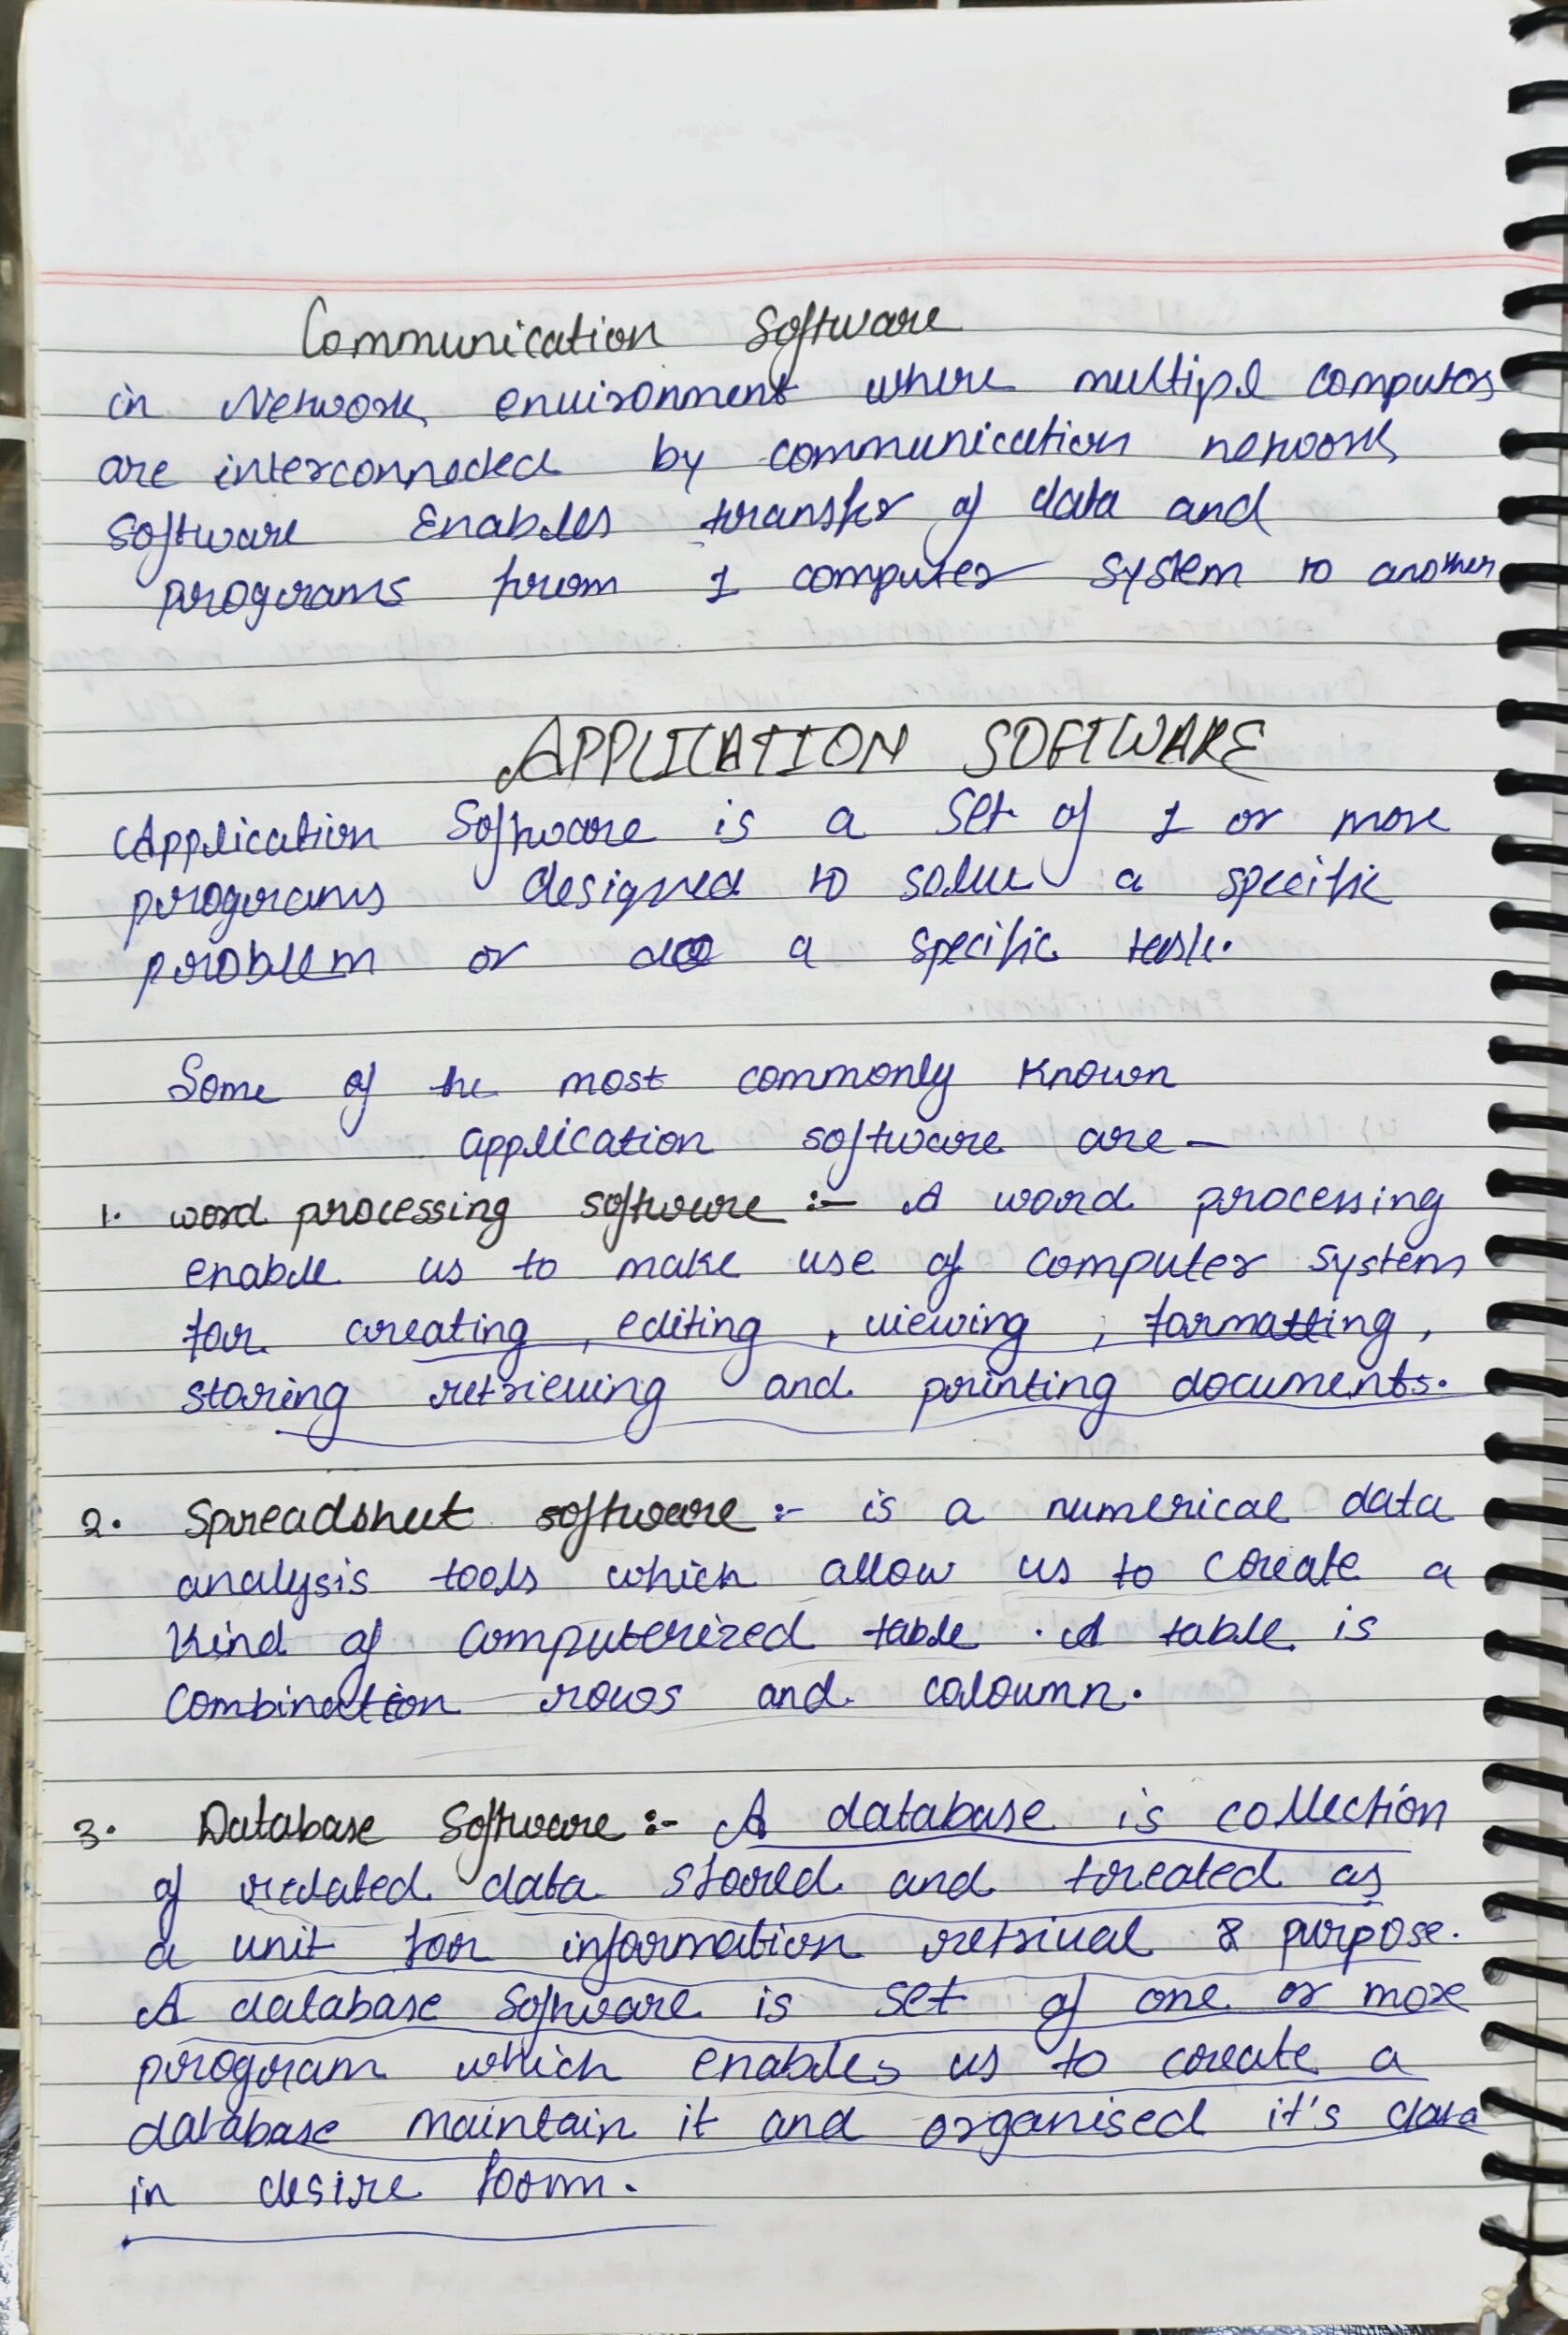 Communication Software
in Network environment where multipl computers
are interconnected by communication network
software Enables transfer of data and
programs from 1 computer system to another
APPLICATION SOFTWARE
Application Software is a set of 1 or more
programs designed to solve a specific
problem or do a specific task.
Some of the most commonly known
application software are —
1. word processing software :- A word processing
enable us to make use of computer system
for creating , editing , viewing , formatting ,
storing retrieving and printing documents.
2. Spreadsheet software :- is a numerical data
analysis tools which allow us to create a
kind of computerized table . A table is
combination rows and coloumn.
3. Database Software :- A database is collection
of related data stored and treated as
a unit for information retrival & purpose.
A database software is set of one or more
program which enables us to create a
database maintain it and organised it's data
in desire form.